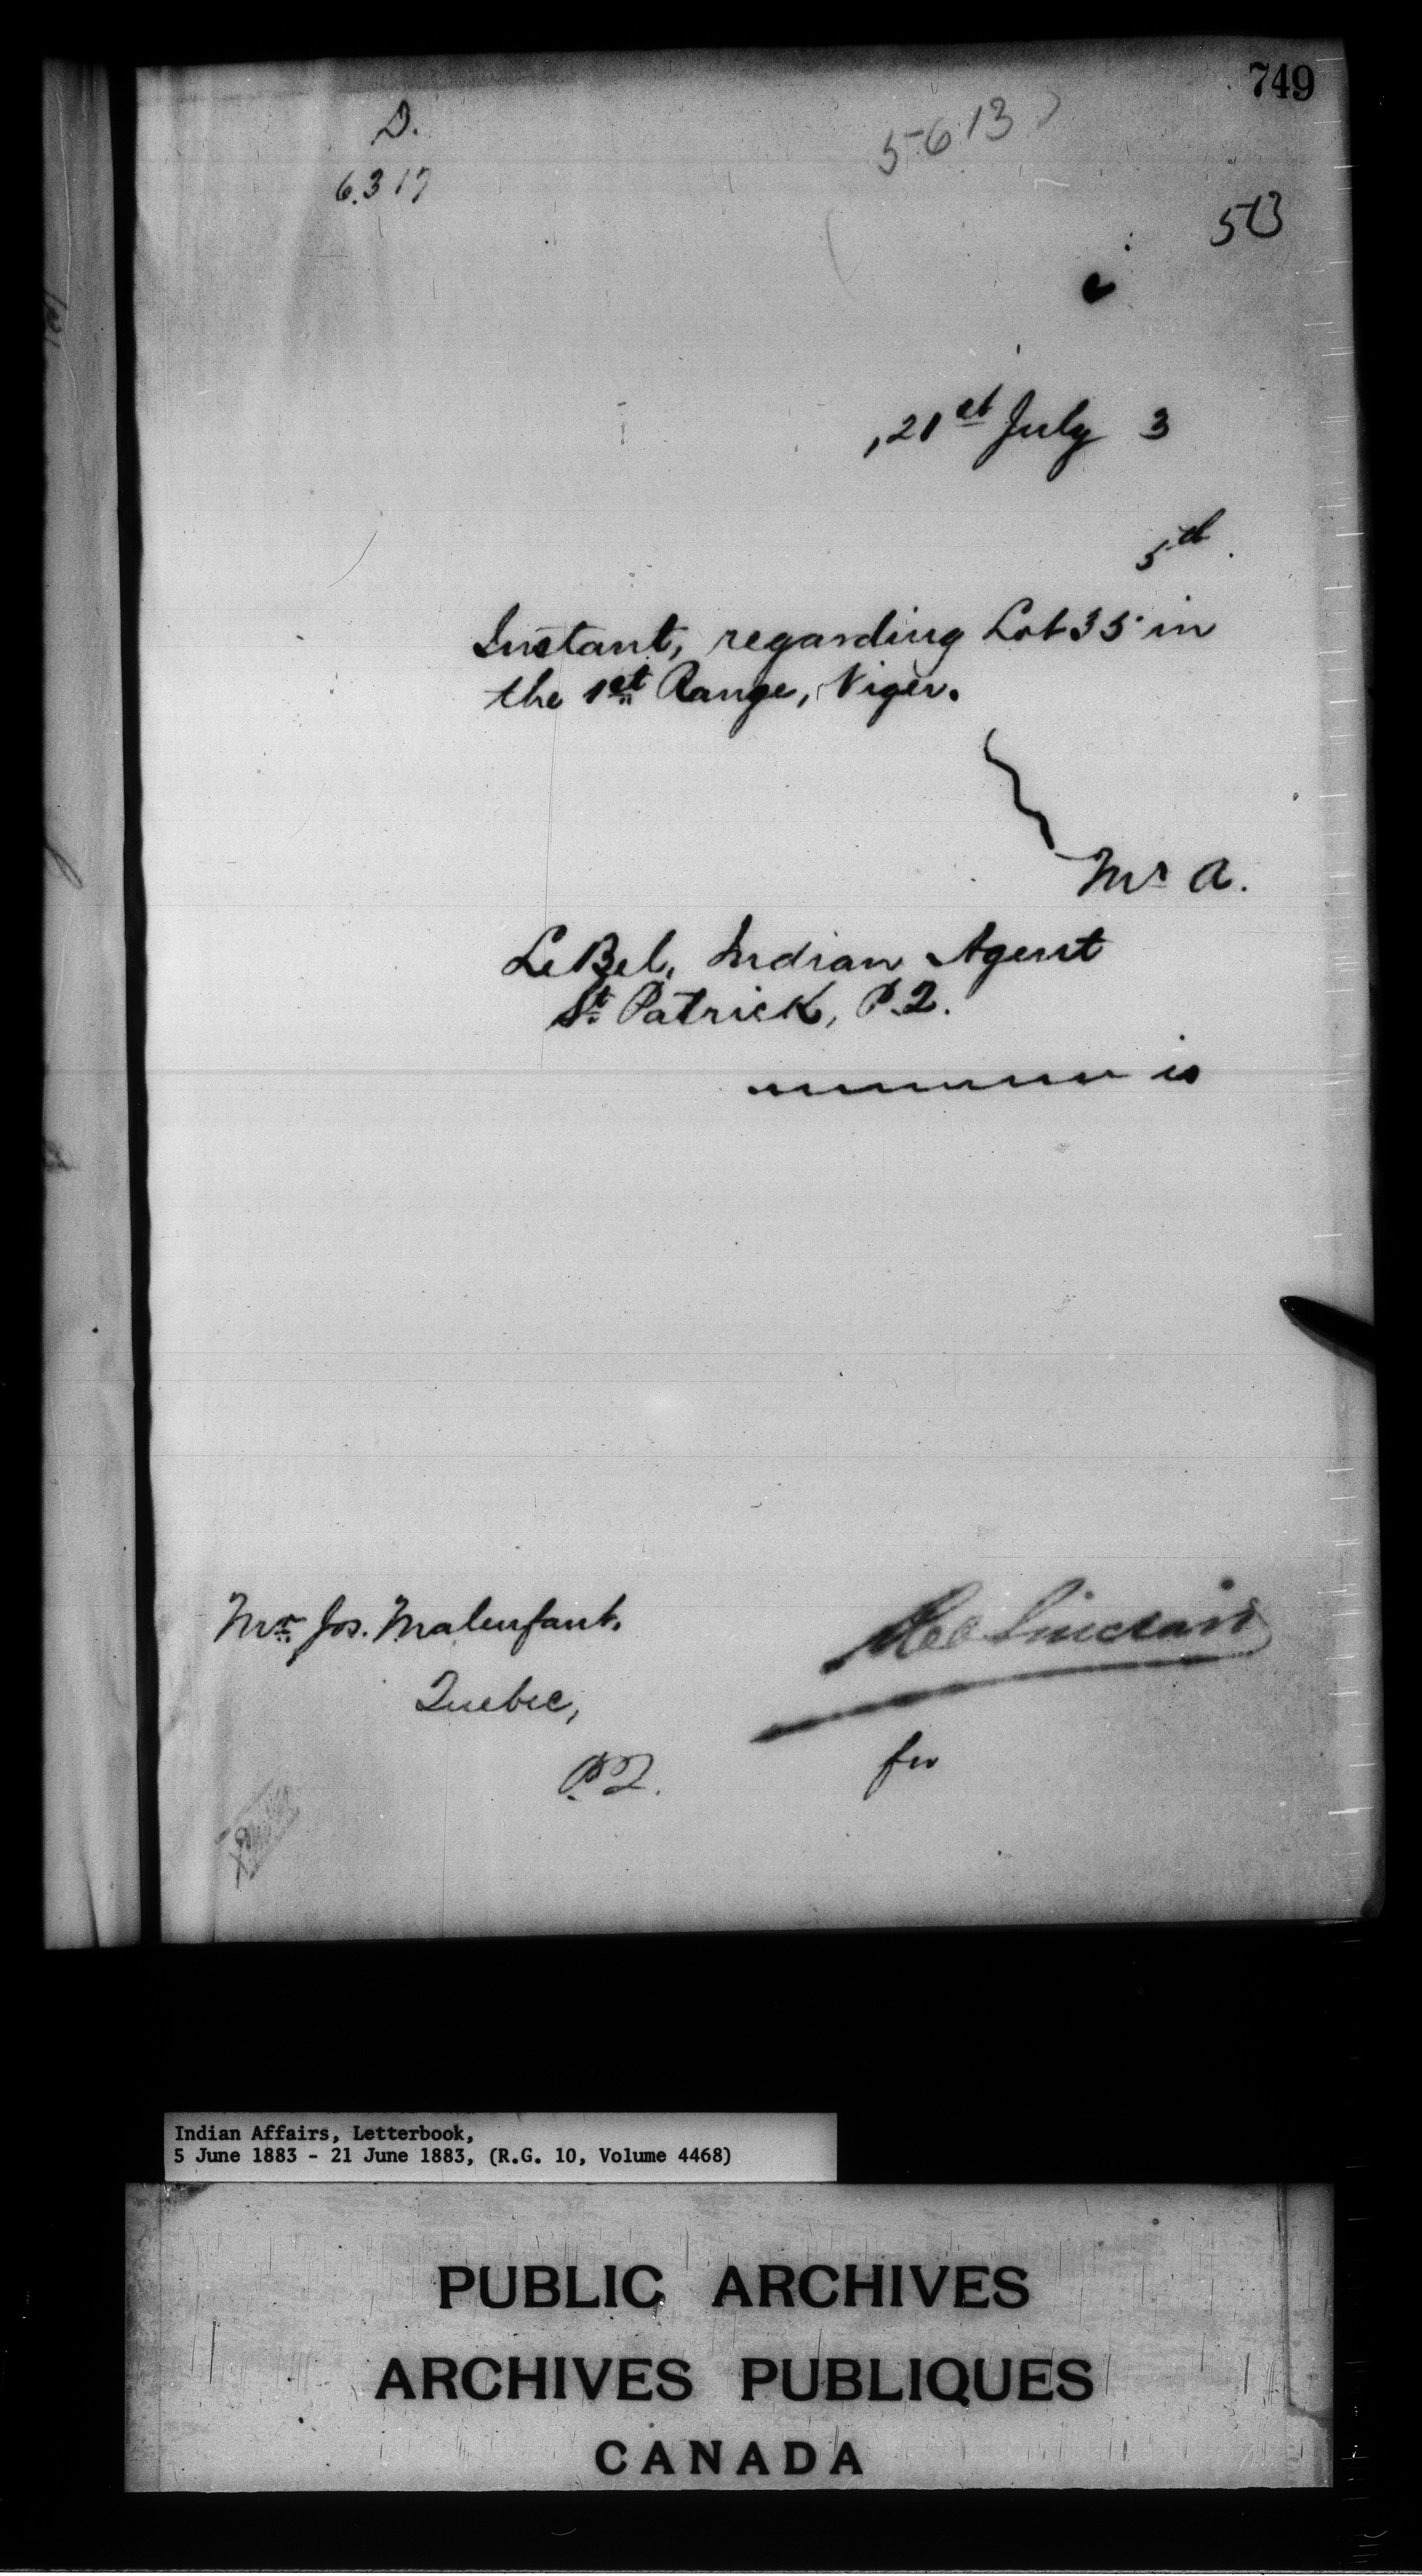 749
D.
5613
6317
513
, 21st July 3
5th
Instant, regarding Lot 35 in
the 1st Range, Viger.
Mr A.
LeBel, Indian Agent
St. Patrick, P.Q.
is
Mr. Jos. Malenfant.
Sinclair
Quebec,
for
P.Q.
Indian Affairs, Letterbook,
5 June 1883 - 21 June 1883, (R.G. 10, Volume 4468)
PUBLIC ARCHIVES
ARCHIVES PUBLIQUES
CANADA